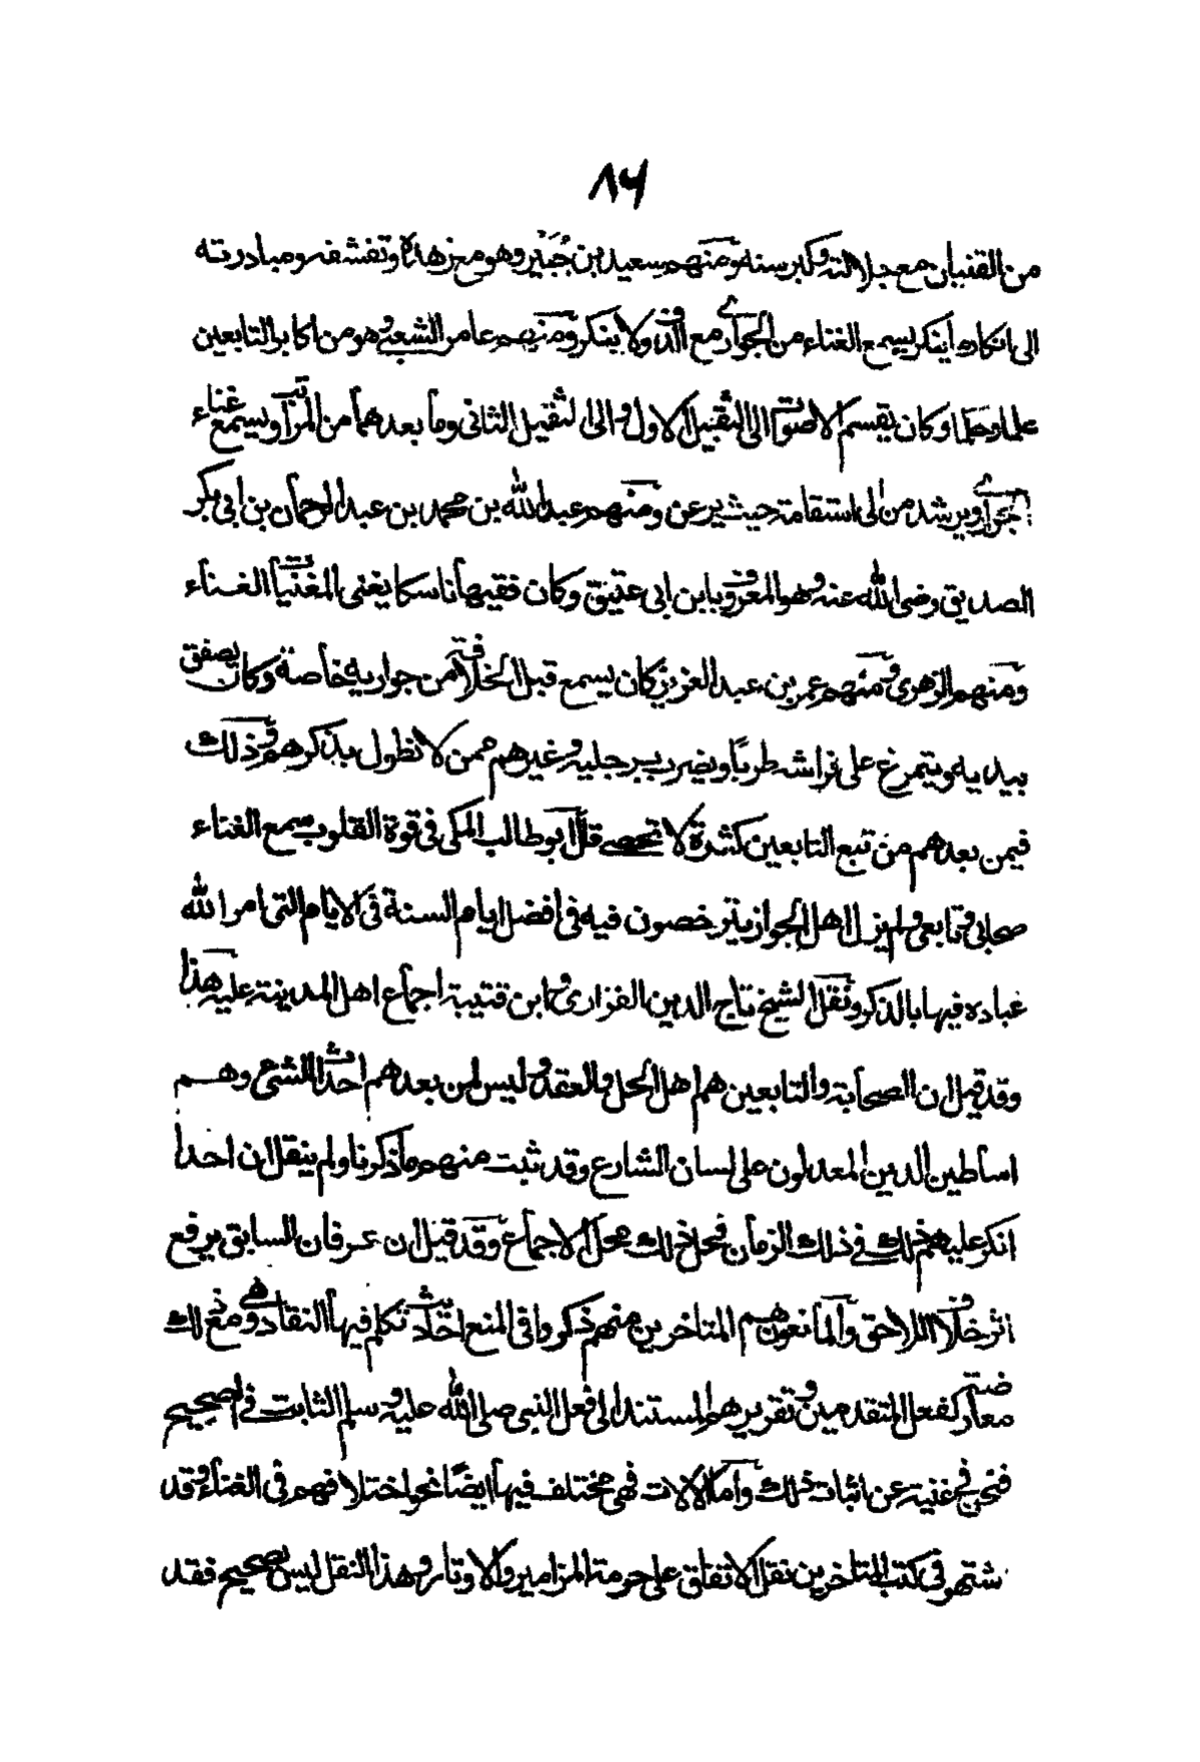 ٨٦
من القنيات مع جلالته وكبر سنه ومنهم سعيد بن جُبَيْر وهو مع زهده وتقشفه ومبادرته
الى انكار ما ينكر يسمع الغناء من الجوارى مع الدف ولا ينكر ومنهم عامر الشعبى وهو من اكابر التابعين
علما وعملا وكان يقسم الاصوات الى الثقيل الاول والى الثقيل الثانى وما بعدهما من المراتب ويسمع غناء
الجوارى ويرشد من الى استقامة حيث يرعن ومنهم عبد الله بن محمد بن عبد الرحمان بن ابى بكر
الصديق رضى الله عنه وهو المعروف بابن ابى عتيق وكان فقيها ناسكا يغنى المغنيات الغناء
ومنهم الزهرى ومنهم عمر بن عبد العزيز كان يسمع قبل الخلافة من جواريه خاصة وكان يصفق
بيديه ويتمرغ على فراشه طربًا ويضرب برجليه وغيرهم ممن لا نطول بذكرهم وذلك
فيمن بعدهم من تبع التابعين كثرة لا تحصى قال ابو طالب المكى فى قوة القلوب سمع الغناء
صحابى وتابعى ولم يزل اهل الجواز يترخصون فيه فى افضل ايام السنة فى الايام التى امر الله
عباده فيها بالذكر ونقل الشيخ تاج الدين الفزارى وابن قتيبة اجماع اهل المدينة عليه هذا
وقد قيل ان الصحابة والتابعين هم اهل الحل والعقد وليس لمن بعدهم احداث الشرع وهم
اساطين الدين المعدلون على لسان الشارع وقد ثبت منهم ما ذكرنا ولم ينقل ان احدا
انكر عليهم ذلك فى ذلك الزمان فحل ذلك محل الاجماع وقد قيل ان عرفان السابق يرفع
اثر خلاف اللاحق واما المانعون هم المتاخرين منهم ذكروا فى المنع احاديث تكلم فيها النقاد وهى مع ذلك
معارضة كفعل المتقدمين وتقريرهم المستند الى فعل النبى صلى الله عليه وسلم الثابت فى الصحيح
فتح فى غنية عن اثبات ذلك واما الالات فهى مختلف فيها ايضًا نحو اختلافهم فى الغناء وقد
شتهر فى كتب المتاخرين نقل الاتفاق على حرمة المزامير والاوتار وهذا النقل ليس بصحيح فقد